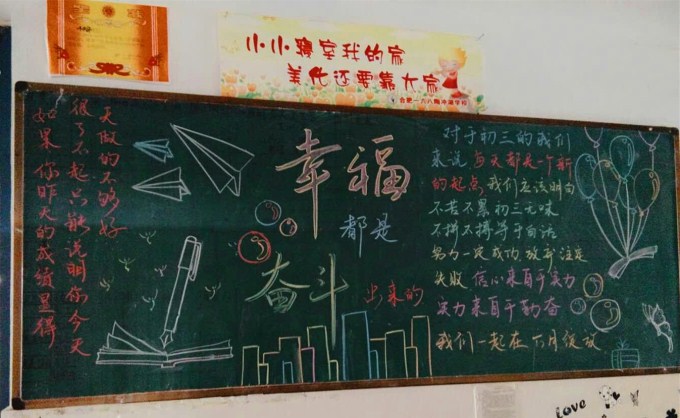 小小寝室我的家
美化还要靠大家
合肥一六八陶冲湖学校
如果你昨天的成绩显得
很了不起只能说明你今天
天做的不够好
幸福
都是
奋斗
出来的
对于初三的我们
来说 每天都是一个新
的起点 我们应该明白
不苦不累初三无味
不拼不搏等于白活
努力一定成功 放弃注定
失败 信心来自于实力
实力来自于勤奋
我们一起在六月绽放
love